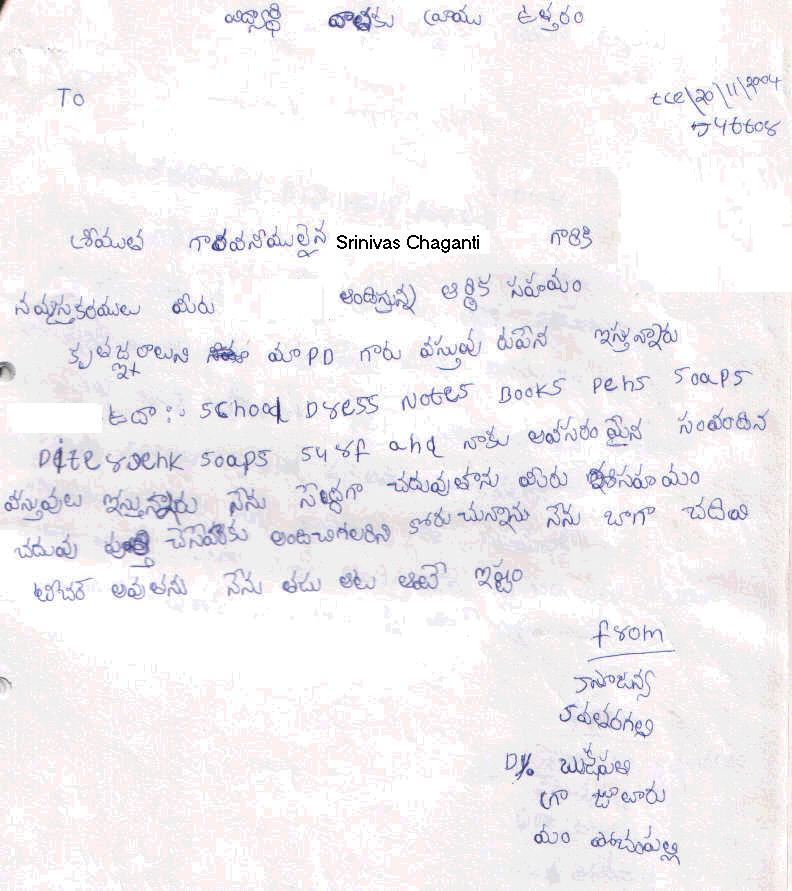 విద్యార్థి దాతకు వ్రాయు ఉత్తరం
To
tce/20/11/2004
శ్రీయుత గౌరవనీయులైన Srinivas Chaganti గారికి
నమస్తకరములు మీరు అందిస్తున్న ఆర్థిక సహయం
కృతజ్ఞరాలుని మా PD గారు వస్తువు రుపేన ఇస్తున్నారు
ఉదా:- School Dress Notes Books Pens Soaps
Diterjenk Soaps Surf and నాకు అవసరం మైన సంబందిన
వస్తువులు ఇస్తున్నారు నేను చదువుతాను మీరు సహయం
చదువు పుర్తి చేసేవరకు అందిచగలరిని కోరుచున్నాను నేను బాగా చదివి
టీచర్ అవుతను నేను ఆటలు అంటే ఇష్టం
from
D/o బుచ్చిపతి
గ్రా జూలూరు
మం పోచంపల్లి